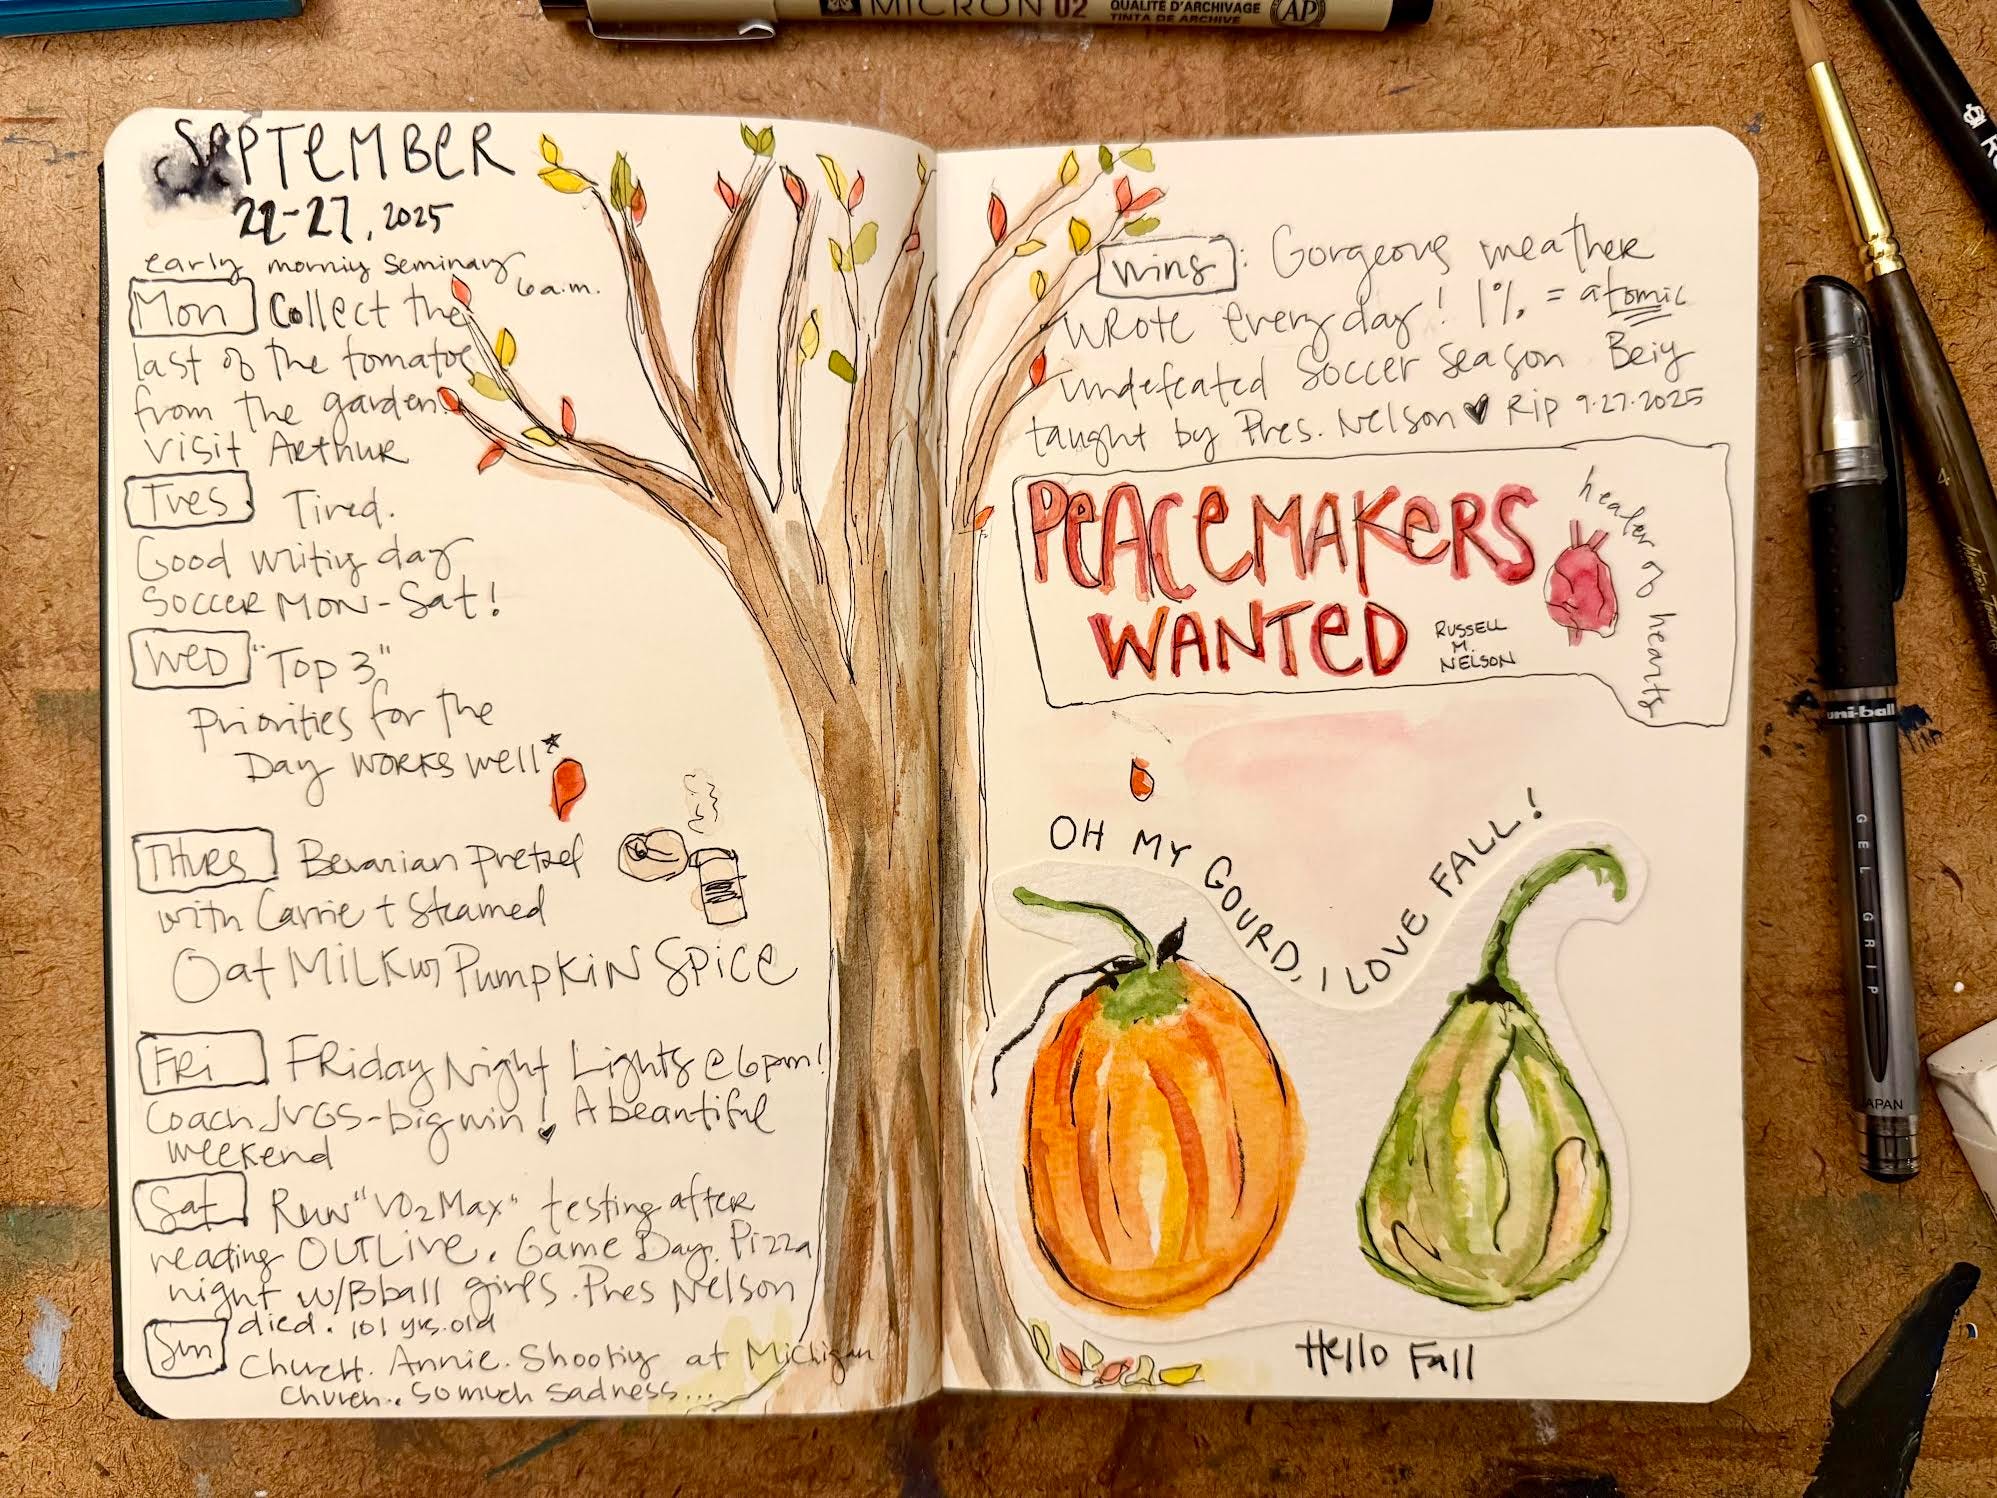 MICRON 02
QUALITÉ D'ARCHIVAGE
TINTA DE ARCHIVE
AP
SEPTEMBER
22-27, 2025
early morning seminary
6 a.m.
Mon Collect the
last of the tomatoes
from the garden.
Visit Arthur
Tues Tired.
Good writing day
SOCCER MON-Sat!
WED "Top 3"
Priorities for the
Day WORKS well*
THURS Bavarian pretzel
with Carrie + Steamed
Oat MILK w/ PUMPKIN SPICE
FRi FRiday Night Lights @ 6pm!
Coach JVGS-big win! A beautiful
weekend
Sat Run "VO2 Max" testing after
reading OUTLIVE. Game Day. Pizza
night w/Bball girls. Pres Nelson
died. 101 yrs. old
Sun Church. Annie. Shooting at Michigan
Church.. so much sadness...
wins: Gorgeous weather
WROTE everyday! 1% = atomic
undefeated Soccer season Being
taught by Pres. Nelson ♥ Rip 9.27.2025
PEACEMAKERS
WANTED
RUSSELL
M.
NELSON
healer of hearts
OH MY GOURD, I LOVE FALL!
Hello Fall
uni-ball
GEL GRIP
JAPAN
4